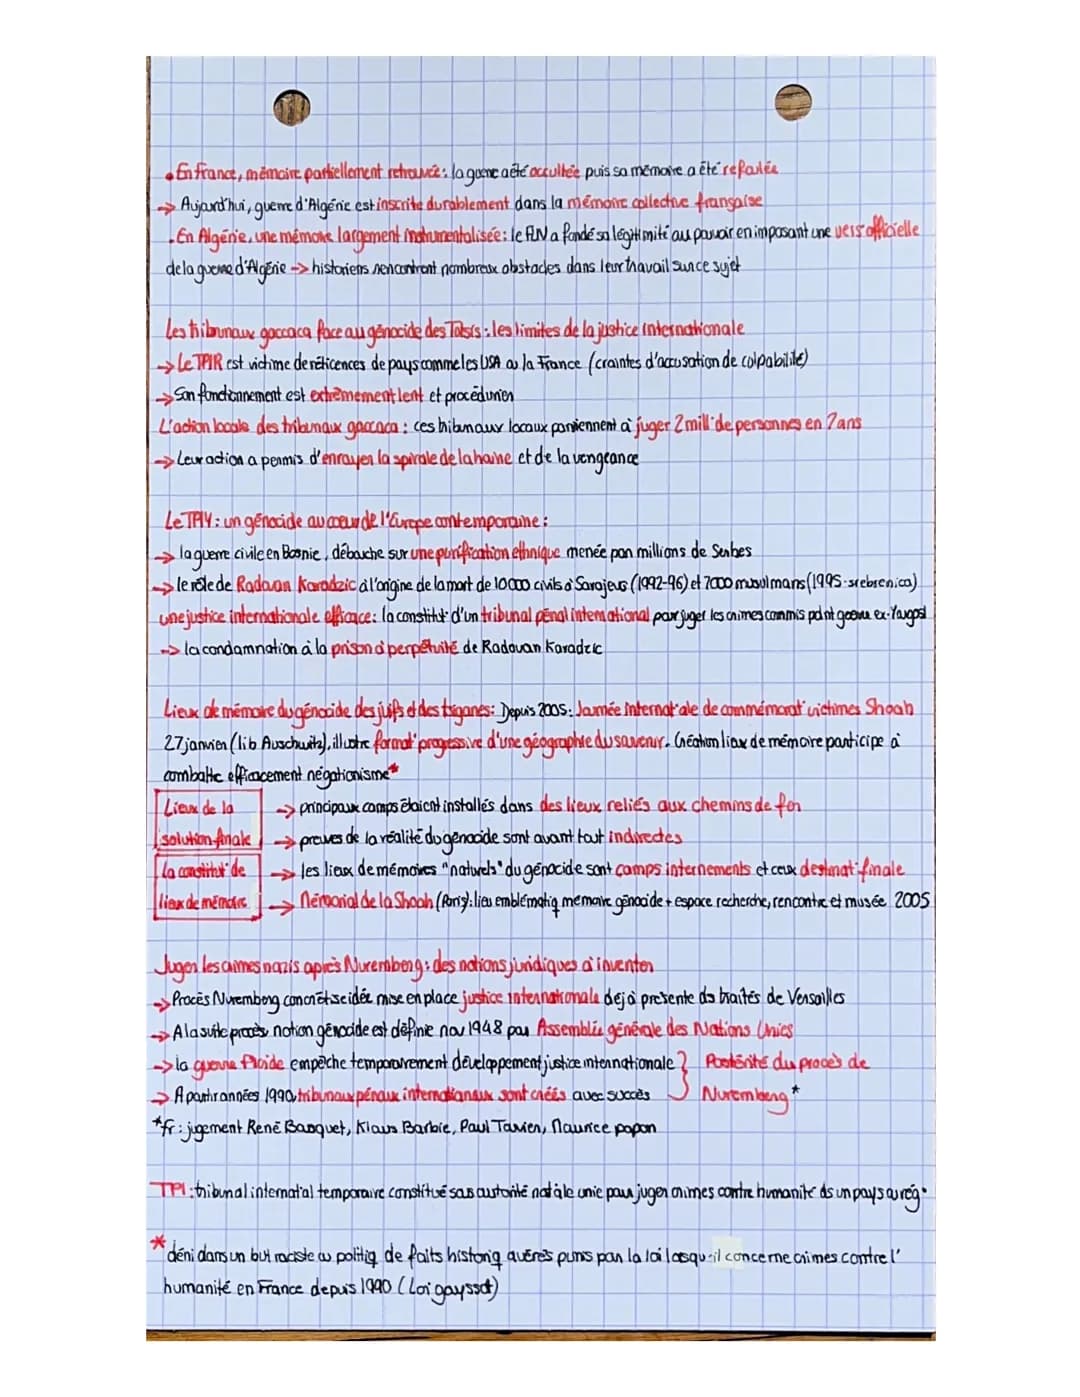 • En France, mémoire partiellement retrouvée : la guerre a été occultée puis sa mémoire a été refoulée
→ Aujourd'hui, guerre d'Algérie est inscrite durablement dans la mémoire collective française
. En Algérie, une mémoire largement instrumentalisée : le FLN a fondé sa légitimité au pouvoir en imposant une vers° officielle
de la guerre d'Algérie → historiens rencontrent nombreux obstacles dans leur travail sur ce sujet
Les tribunaux gaccaca face au génocide des Tutsis : les limites de la justice internationale
→ Le TPIR est victime de réticences de pays comme les USA ou la France (craintes d'accusation de culpabilité)
→ Son fonctionnement est extrêmement lent et procédurier
L'action locale des tribunaux gaccaca : ces tribunaux locaux parviennent à juger 2 mill° de personnes en 7 ans
→ Leur action a permis d'enrayer la spirale de la haine et de la vengeance
Le TPIY : un génocide au coeur de l'Europe contemporaine :
→ la guerre civile en Bosnie, débouche sur une purification ethnique menée par millions de Serbes
→ le rôle de Radovan Karadzic à l'origine de la mort de 10 000 civils à Sarajevo (1992-96) et 7000 musulmans (1995 - srebrenica)
une justice internationale efficace : la constitut° d'un tribunal pénal international pour juger les crimes commis pdnt guerre ex-Yougosl
→ la condamnation à la prison à perpétuité de Radovan Karadzic
Lieux de mémoire du génocide des juifs et des tsiganes : Depuis 2005 : Journée internat°ale de commémorat° victimes Shoah
27 janvier (lib Auschwitz), illustre format° progressive d'une géographie du souvenir. Création lieux de mémoire participe à
combattre efficacement négationisme*
Lieux de la → principaux camps étaient installés dans des lieux reliés aux chemins de fer
solution finale → preuves de la réalité du génocide sont avant tout indirectes
La constitut° de → les lieux de mémoires "naturels" du génocide sont camps internements et ceux destinat° finale
lieux de mémoire → Mémorial de la Shoah (Paris) : lieu emblématiq mémoire génocide + espace recherche, rencontre et musée 2005
Juger les crimes nazis après Nuremberg : des notions juridiques à inventer
→ Procès Nuremberg concrétise idée mise en place justice internationale déjà présente ds traités de Versailles
→ A la suite procès notion génocide est définie nov 1948 par Assemblée générale des Nations Unies
→ la guerre froide empêche temporairement développement justice internationale } Postérité du procès de
→ A partir années 1990, tribunaux pénaux internationaux sont créés avec succès } Nuremberg*
*fr : jugement René Bousquet, Klaus Barbie, Paul Touvier, Maurice papon
TPI : tribunal internat°al temporaire constitué sous autorité nat° unie pour juger crimes contre humanité ds un pays ou rég°
* déni dans un but raciste ou politiq de faits historiq avérés punis par la loi lorsqu'il concerne crimes contre l'
humanité en France depuis 1990 (Loi gayssot)